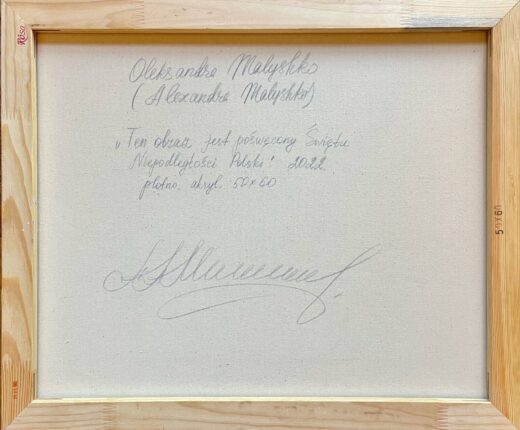 Rosa
Oleksandra Malyshko
(Alexandra Malyshko)
„Ten obraz jest poświęcony Świętu
Niepodległości Polski" 2022
płótno, akryl. 50x60
50x60